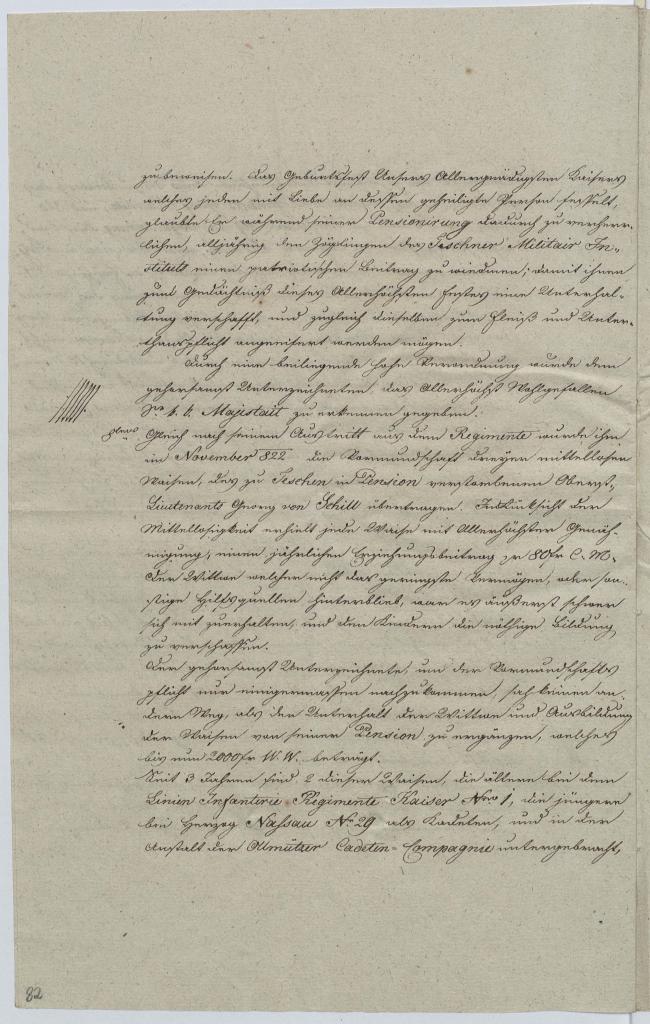 zu beweisen. Das Geburtsfest Unsers Allergnädigsten Kaisers
welches jeden mit Liebe an dessen geheiligte Person fesselt,
glaubte Er während seiner Pensionirung dadurch zu verherr-
lichen, alljährig den Zöglingen des Teschner Militair In-
stituts einen patriotischen Beitrag zu wiedmen; damit ihnen
zum Gedächtniß dieses Allerhöchsten Festes eine Unterhal-
tung verschafft, und zugleich dieselben zum Fleiß und Unter-
thanspflicht angeeifert werden mögen.
Durch eine beiliegende hohe Verordnung wurde dem
gehorsamst Unterzeichneten das Allerhöchste Wohlgefallen
Sr k. k. Majistätt zu erkennen gegeben.
Gleich nach seinem Austritt aus dem Regimente wurde ihm
im November 822 die Vormundschaft dreyer mittellosen
Waisen, des zu Teschen in Pension verstorbenen Oberst-
Lieutenants Georg von Schill übertragen. In Rücksicht der
Mittellosigkeit erhielt jede Waise mit Allerhöchster Geneh-
migung, einen jährlichen Erziehungsbeitrag pr 80 fr C. M.
Der Wittwe welcher nicht das geringste Vermögen, oder son-
stige Hilfsquellen hinterblieb, war es äußerst schwer
sich mit zuerhalten, und den Kindern die nöthige Bildung
zu verschaffen.
Der gehorsamst Unterzeichnete, um der Vormundschafts
pflicht nur einigermassen nachzukommen, sah keinen an-
dern Weg, als den Unterhalt der Wittwe und Ausbildung
der Waisen von seiner Pension zu ergänzen, welches
bis nun 2000 fr W. W. beträgt.
Seit 3 Jahren sind 2 dieser Waisen, die ältere bei dem
Linien Infanterie Regimente Kaiser Nro 1, die jüngere
bei Herzog Nassau No 29 als Kadeten, und in der
Anstalt der Olmützer Cadeten-Compagnie untergebracht,
82